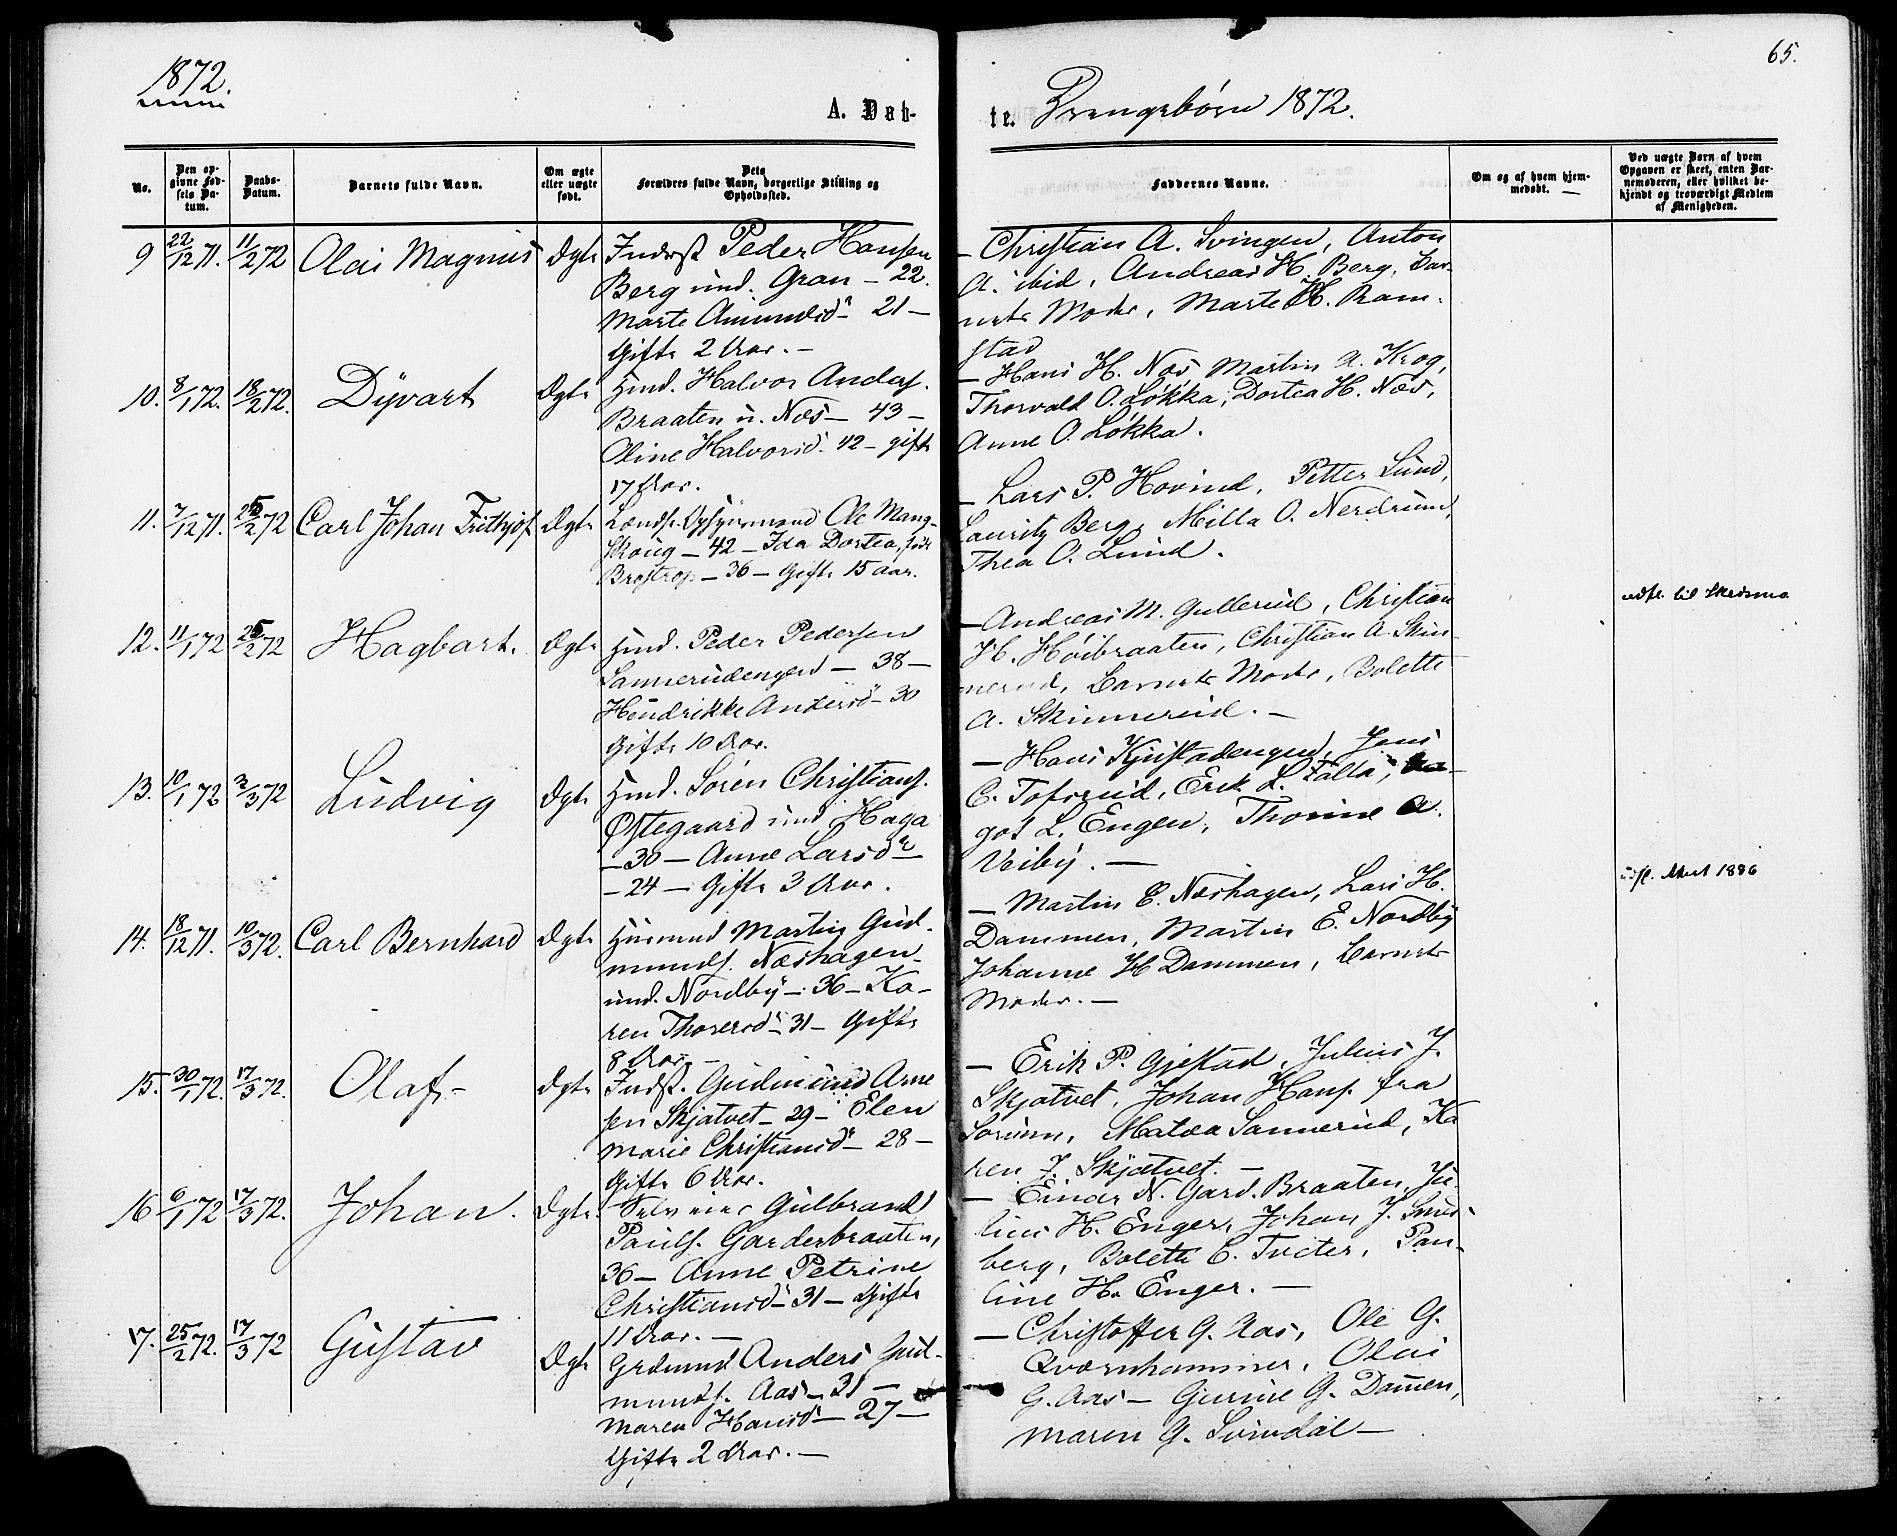 1872.
65.
A. Døb-
te. Drengebørn 1872.
No.
Den op-
givne Fød-
sels Da-
tum.
Daabs-
Datum.
Barnets fulde Navn.
Om ægte
eller uægte
født.
Dets
Forældres fulde Navn, borgerlige Stilling og
Opholdssted.
Faddernes Navne.
Om og af hvem hjem-
medøbt.
Ved uægte Børn af hvem
Opgaven er skeet, enten Bar-
nemoderen, eller hvilket be-
kjendt og troværdigt Medlem
af Menigheden.
9 22/12 71. 11/2 72 Olai Magnus Ægte Inderst Peder Hansen
Berg und. Gran – 22.
Marte Amundsd – 21 –
Gifte 2 Aar. –
– Christian A. Svingen, Anton
A. ibid, Andreas H. Berg, Bar-
nets Moder, Marte H. Ram-
stad
10. 8/1 72. 18/2 72. Dyvart Ægte Hmd. Halvor Anders.
Braaten u. Næs – 43 –
Oline Halvorsd. 42 – gifte
17 Aar.
– Hans H. Næs Martin A. Krog,
Thorvald O. Løkka, Dortea H. Næs,
Anne O. Løkka.
11. 7/12 71. 25/2 72 Carl Johan Frithjof Ægte Landh. Ole Mang-
Skoug – 42 – Ida Dortea, født
Brostrop – 36 – Gifte 15 aar.
– Lars P. Hovind, Petter Lund,
Lauritz Berg, Milla O. Nerdrum,
Thea O. Lund.
12. 11/1 72 25/2 72 Hagbart. Ægte Hmd. Peder Pedersen
Sannerudengen – 38 –
Hendrikke Andersd – 30
Gifte 10 Aar.
– Andreas M. Gullerud, Christian
H. Høibraaten, Christian A. Skin-
nerud, Barnets Moder, Bolette
A. Skinnerud. –
udfl. til Skedsmo
13. 10/1 72 3/3 72 Ludvig Ægte Hmd. Søren Christians.
Østegaard und Haga
– 30 – Anne Larsd
– 24 – Gifte 3 Aar.
– Hans Kjustadengen, Jens
C. Tofsrud, Erik L. Falla,
L. Engen, Thorine A.
Veiby. –
14. 18/12 71. 10/3 72. Carl Bernhard Ægte Husmand Martin Gud-
munds. Næshagen
und. Nordby – 36 – Ka-
ren Thorersd – 31 – Gifte
8 Aar –
– Martin E. Næshagen, Lars H.
Dammen, Martin E. Nordby
Johanne H Dammen, Barnets
Moder. –
Attest 1886
15. 30/1 72. 17/3 72. Olaf – Ægte Indst. Gudmund Arne
sen Skjatvet – 29 – Elen
Marie Christiansd – 28 –
Gifte 6 Aar.
– Erik P. Gjestad, Julius J.
Skjatvet, Johan Hans. fra
Sørum, Matea Sannerud, Ka
ren J. Skjatvet. –
16 6/1 72 17/3 72. Johan. Ægte. Selveier Gulbrand
Pauls. Garderbraaten,
36 – Anne Petrine
Christiansd – 31 – Gifte
11 Aar. –
– Einar N. Gard. Braaten, Ju-
lius H. Enger, Johan J. Smed-
berg, Bolette C. Tveter, Pau-
line H. Enger. –
17. 25/2 72. 17/3 72 Gustav Ægte Grdmand Anders Gud-
munds. Aas – 31 –
Maren Hansd – 27 –
Gifte 2 Aar. –
– Christoffer G. Aas, Ole G.
Qværnhammer, Olai
G. Aas – Gurine G. Damen,
Maren G. Svindal –